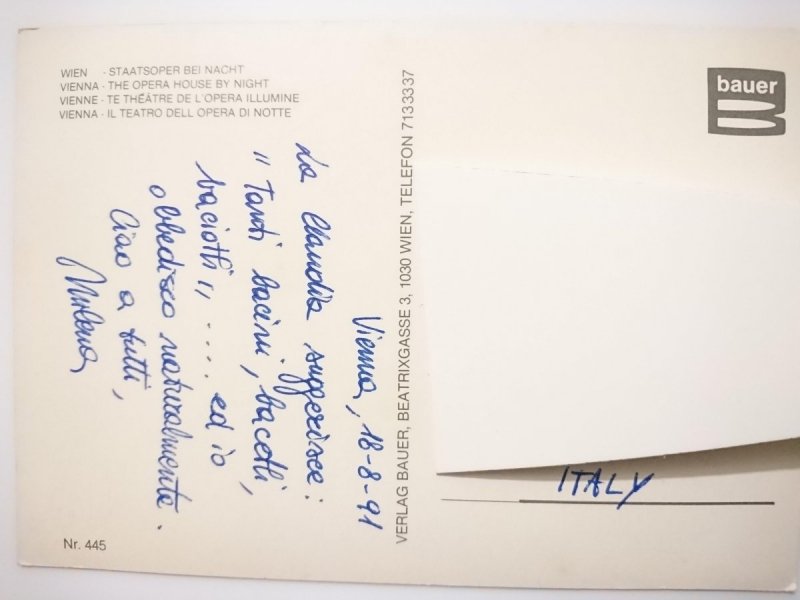 WIEN - STAATSOPER BEI NACHT
VIENNA - THE OPERA HOUSE BY NIGHT
VIENNE - TE THÉÂTRE DE L'OPERA ILLUMINE
VIENNA - IL TEATRO DELL OPERA DI NOTTE
Vienna, 18-8-91
La Claudia suggerisce:
"Tanti bacini, bacetti,
baciotti" ..... ed io
obbedisco naturalmente.
Ciao a tutti,
Milena
Nr. 445
VERLAG BAUER, BEATRIXGASSE 3, 1030 WIEN, TELEFON 7133337
bauer
ITALY